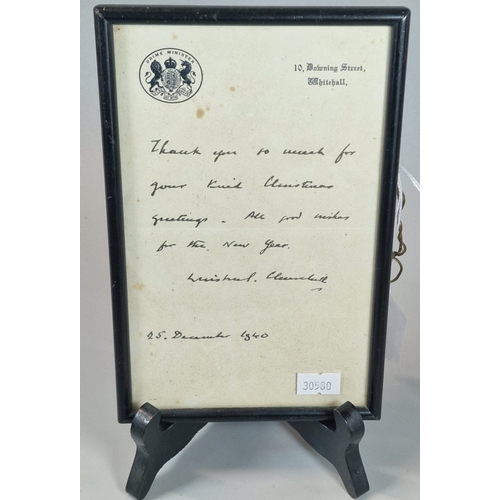 PRIME MINISTER
10, Downing Street,
Whitehall.
Thank you so much for
your kind Christmas
greetings. All good wishes
for the New Year.
Winston S. Churchill
25. December 1940
30580